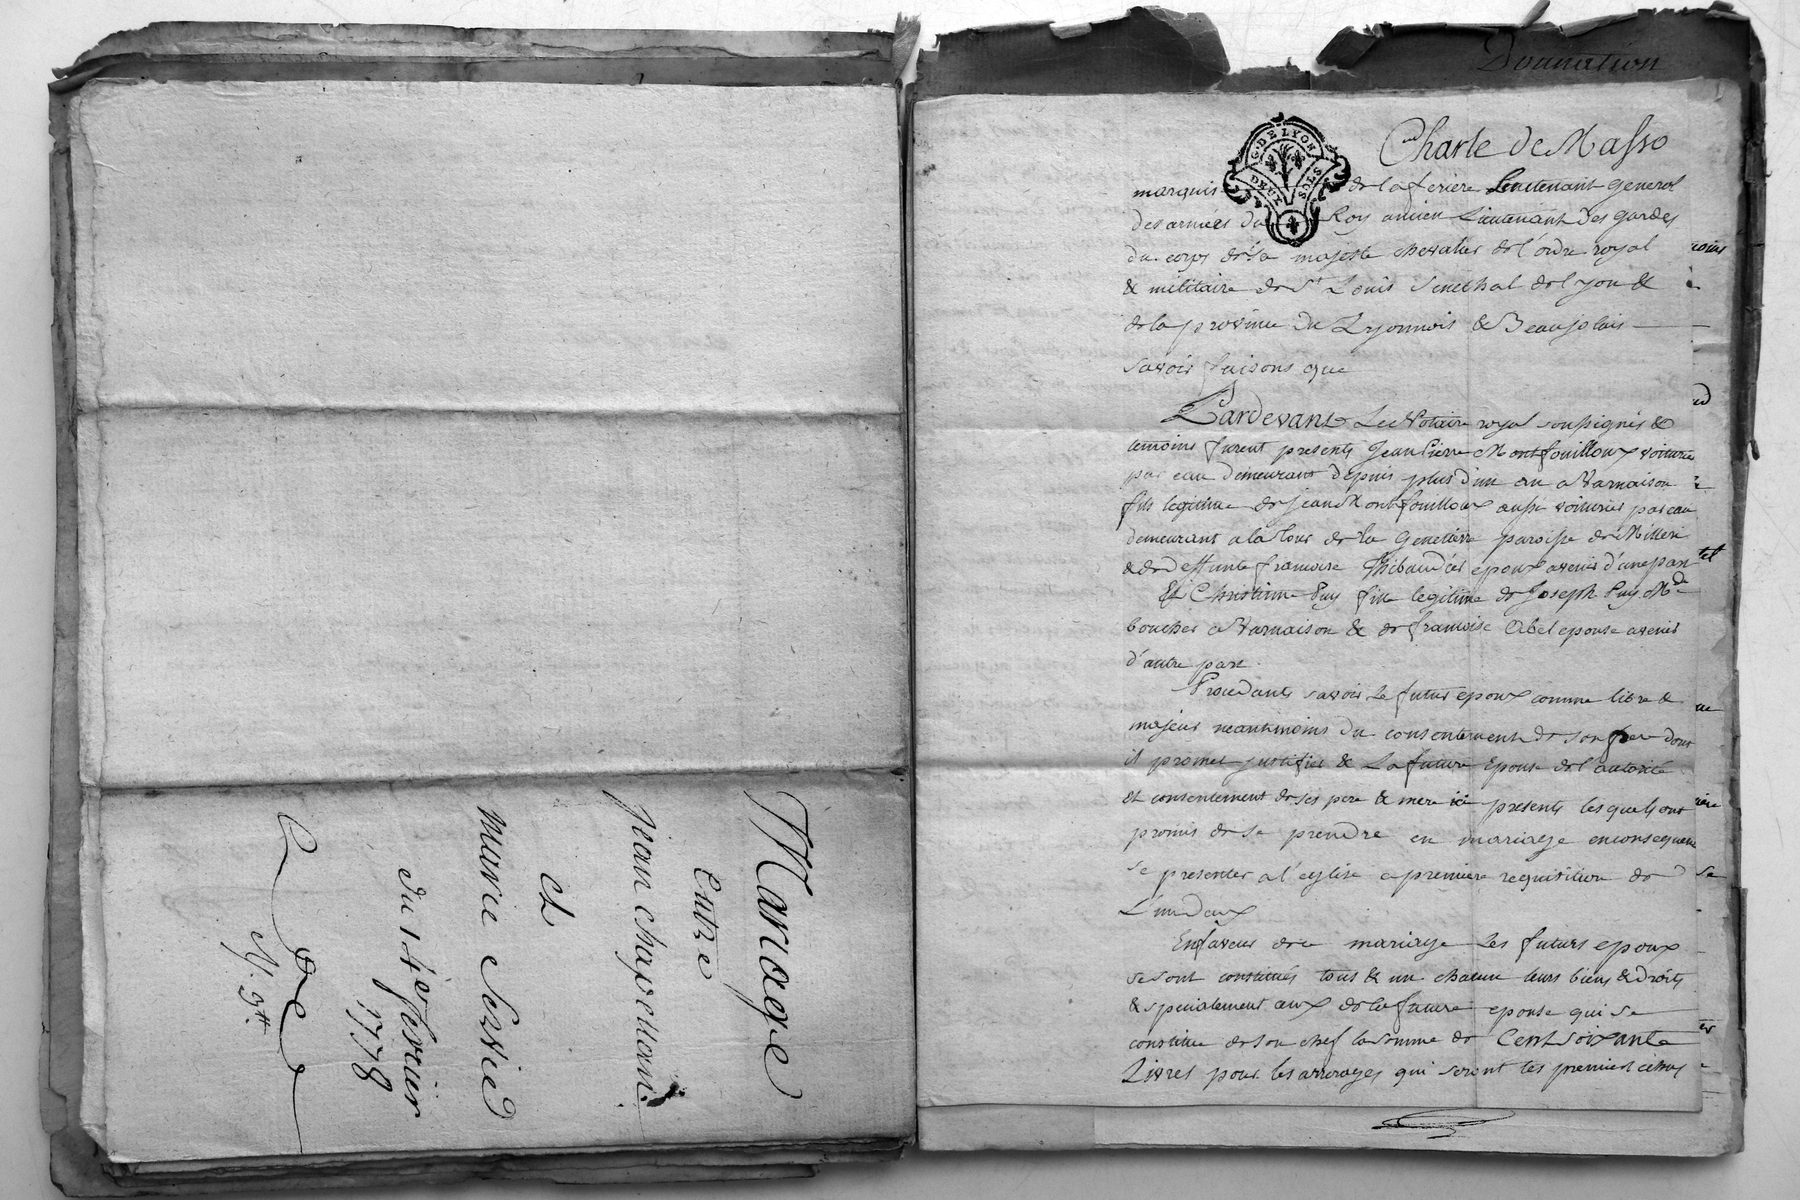 Mariage
Entre
jean chavouani
et
marie Servie
du 14e fevrier
1778
N. 9tt
Donnation
G. DE LYON
DEUX SOLS
Charle de Masso
marquis de la feriere Leutenant general
des armées du Roy ancien Lieutenant des gardes
du corps de sa majesté chevalier de l'ordre royal
& militaire de St Louis Senechal de Lyon &
de la province du Lyonnois & Beaujolais
savoir faisons que
Pardevant Le Notaire royal soussigné &
temoins furent presents Jean Pierre Montfouilloux voiturier
par eau demeurant depuis plus d'un an a Varnaison
fils legitime de Jean Montfouilloux aussi voiturier par eau
demeurant a la Tour de la Genetiere paroisse de Milleri
& de deffunte francoise Thibaudier epoux avenir d'une part
Et Christinne Puy fille legitime de Joseph Puy Md
boucher a Varnaison & de francoise Abel epouse avenir
d'autre part
Procedants savoir Le futur epoux comme libre &
majeur neantmoins du consentement de son pere dont
il promet justifier & La future Epouse de l'autorité
Et consentement de ses pere & mere ici presents les quels ont
promis de se prendre en mariage en consequence
se presenter a l'eglise a premiere requisition de
L'un deux
En faveur de ce mariage Les futurs epoux
se sont constitués tous & un chacun leurs biens & droits
& specialement aux de la future epouse qui se
constitue de son chef la somme de Cent soixante
Livres pour les arrerages qui seront les premiers